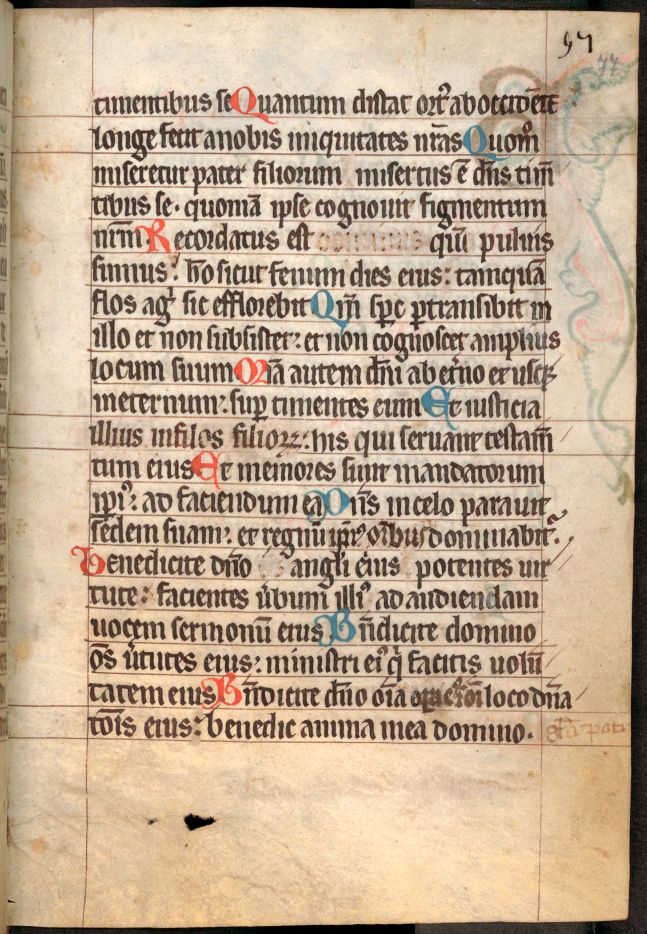 97
77
timentibus se Quantum distat ort᷑ ab occidēte
longe fecit a nobis iniquitates nr̄as Quom̊
miseretur pater filiorum misertus ē dn̄s tim̄
tibus se· quoniā ipse cognouit figmentum
nr̄m Recordatus est dominus qm̄ puluis
sumus: hō sicut fenum dies eius: tamqͣ̄
flos ag̊ͥ sic efflorebit Qm̄ sp̄c ꝑtransibit in
illo et non subsistet: et non cognoscet amplius
locum suum Mīa autem dn̄i ab et̄no et usqꝫ
in eternum: suꝑ timentes eum Et iusticia
illius in filios filioꝝ: his qui seruant testam̄
tum eius Et memores sunt mandatorum
ip̄iꝰ: ad faciendum ea Dn̄s in celo parauit
sedem suam: et regnū ip̄iꝰ om̄ibus dominabit᷑.
Benedicite dn̄o angl̄i eius potentes uir
tute: facientes u̾bum illiꝰ ad audiendam
uocem sermonū eius Bn̄dicite domino
om̄s u̾tutes eius: ministri eiꝰ qͥ facitis uolū
tatem eius Bn̄dicite dn̄o om̄ia opera loco dn̄a
tōis eius: benedic anima mea domino.
gl̄ia patri